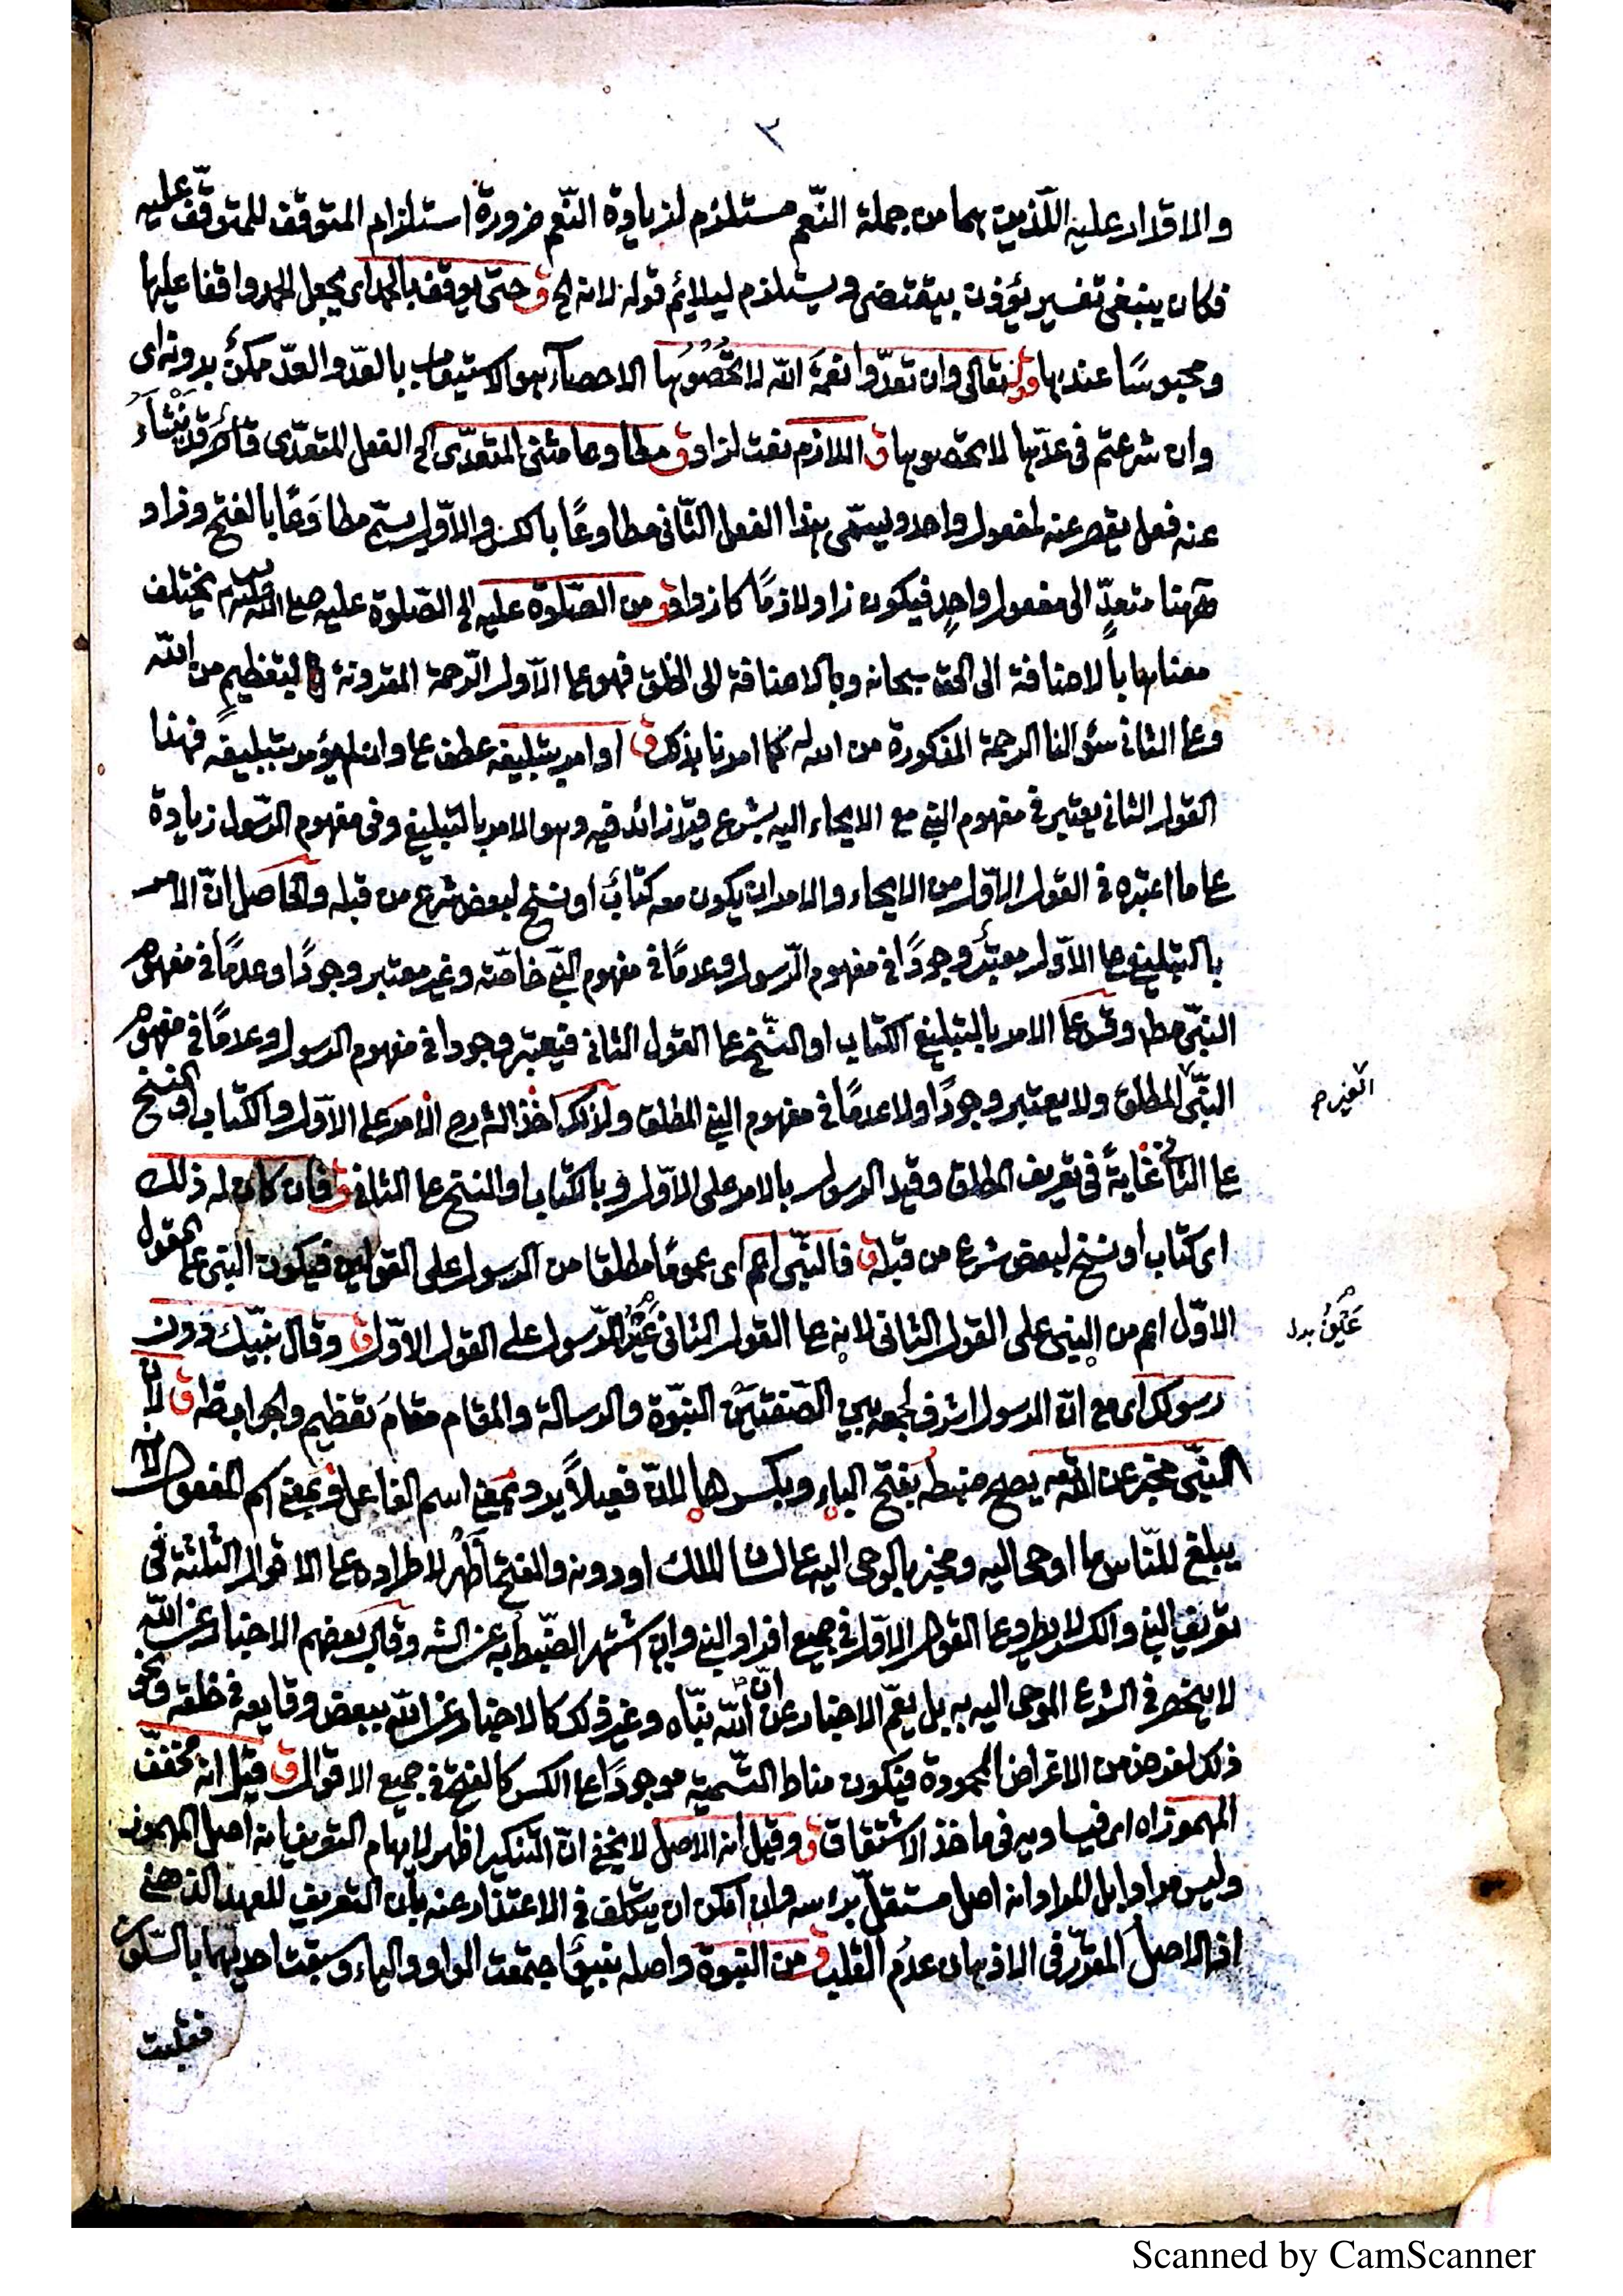 ٣
والاقدار عليه اللذين هما من جملة النّعم مستلزم لزيادة النّعم ضرورة استلزام المتوقف للمتوقّف عليه
فكان ينبغى تفسير يؤذن بيقتضى ويستلزم ليلائم قوله لانه الخ ق حتى يوقف بالحمد اى يجعل الحمد واقفا عليها
ومحبوسًا عندها قوله تعالى وان تعدّوا نعمة الله لا تحصوها الاحصاء هو الاستيعاب بالعدّ والعدّ ممكن بدونه اى
وان شرعتم فى عدّها لا تحصوها ق اللازم نعت لزاد ق مطاوعا مثنى المتعدّى الخ الفعل المتعدّى قد يَنْشَأ
عنه فعل يقصر عنه لمفعول واحد ويسمّى هذا الفعل الثّانى مطاوعًا بالكسر والاوّل يسمّى مطاوَعًا بالفتح وزاد
ههنا متعدٍّ الى مفعول واحدٍ فيكون زاد لازمًا كازداد ق من الصّلوة عليه الخ الصّلوة عليه صلى الله عليه وسلم يختلف
معناها بالاضافة الى الحق سبحانه وبالاضافة الى الخلق فهو على الاول الرّحمة المقرونة بالتعظيم من الله
وعلى الثانى سؤالنا الرحمة المذكورة من الله كما امرنا بذلك ق او امر بتبليغه عطف على وان لم يؤمر بتبليغه فهذا
القول الثانى يعتبر فى مفهوم النبى مع الايحاء اليه بشرع قيدٌ زائد فيه وهو الامر بالتبليغ وفى مفهوم الرّسول زيادة
على ما اعتبره فى القول الاوّل من الايحاء والامر ان يكون معه كتابٌ او نسخ لبعض شرع من قبله والحاصل انّ الامر
بالتبليغ على الاوّل معتبر وجودًا فى مفهوم الرّسول وعدمًا فى مفهوم النبى خاصّة وغير معتبر وجودًا وعدمًا فى مفهوم
النبّى مطلقا وقس على الامر بالتبليغ الكتاب او النّسخ على القول الثانى فيعتبر وجودا فى مفهوم الرسول وعدمًا فى مفهوم
النبّى المطلق ولا يعتبر وجودًا ولا عدمًا فى مفهوم النبى المطلق ولذلك اخذ الشارح الامر على الاوّل والكتاب او النسخ
على الثانى غاية فى تعريف المطلق وقيد الرسول بالامر على الاوّل وبالكتاب او النسخ على الثانى ق فان كان له ذلك
اى كتاب او نسخ لبعض شرع من قبله ق فالنّبى اعم اى عمومًا مطلقا من الرسول على القولين فيكون النبى على القول
الاوّل اعم من النبى على القول الثانى لانه على القول الثانى عَيْنُ الرّسول على القول الاوّل ق وقال نبيّك دون
رسولك اى مع انّ الرسول اشرف لجمعه بين الصّفتين النبوّة والرسالة والمقام مقام تعظيم والجواب ظاهر ق لانّ
النبّى مخبر عن الله يصح ضبطه بفتح الباء وبكسرها لانّ فعيلًا يرد بمعنى اسم الفاعل وبمعنى اسم المفعول لانه
يبلغ للنّاس ما اوحى اليه ومخبر بالوحى اليه على لسان الملك او دونه والفتح اظهر لاطراده على الاقوال الثلثة فى
تعريف النبى والكسر لا يطرد على القول الاوّل فى جميع افراد النبى وان اشتهر الضّبط به عن الشه وقال بعضهم الاخبار عن الله
لا ينحصر فى الشرع الموحى اليه به بل يعمّ الاخبار عن انّ الله نبّاه وغير ذلك كالاخبار عن الله ببعض وقايعه فى خلقه ونحو
ذلك لغرض من الاغراض المحمودة فيكون مناط التّسمية موجودًا على الكسر كالفتح فى جميع الاقوال ق قيل انه مخفّف
المهموز اه اى فيساويه فى ماخذ الاشتقاق ق وقيل انه الاصل لا يخفى انّ التّنكير اظهر لايهام التعريف انه اصل المهموز
وليس مرادا بل المراد انه اصل مستقلّ براسه وان امكن ان يتكلف فى الاعتذار عنه بان التعريف للعهد الذهنى
اذ الاصل المقرّر فى الاذهان عدم القلب ق من النبوة واصله نبيو اجتمعت الواو والياء وسبقت احديهما بالسّكون
فقلبت
الغير م
عَيْنُ بدل
Scanned by CamScanner